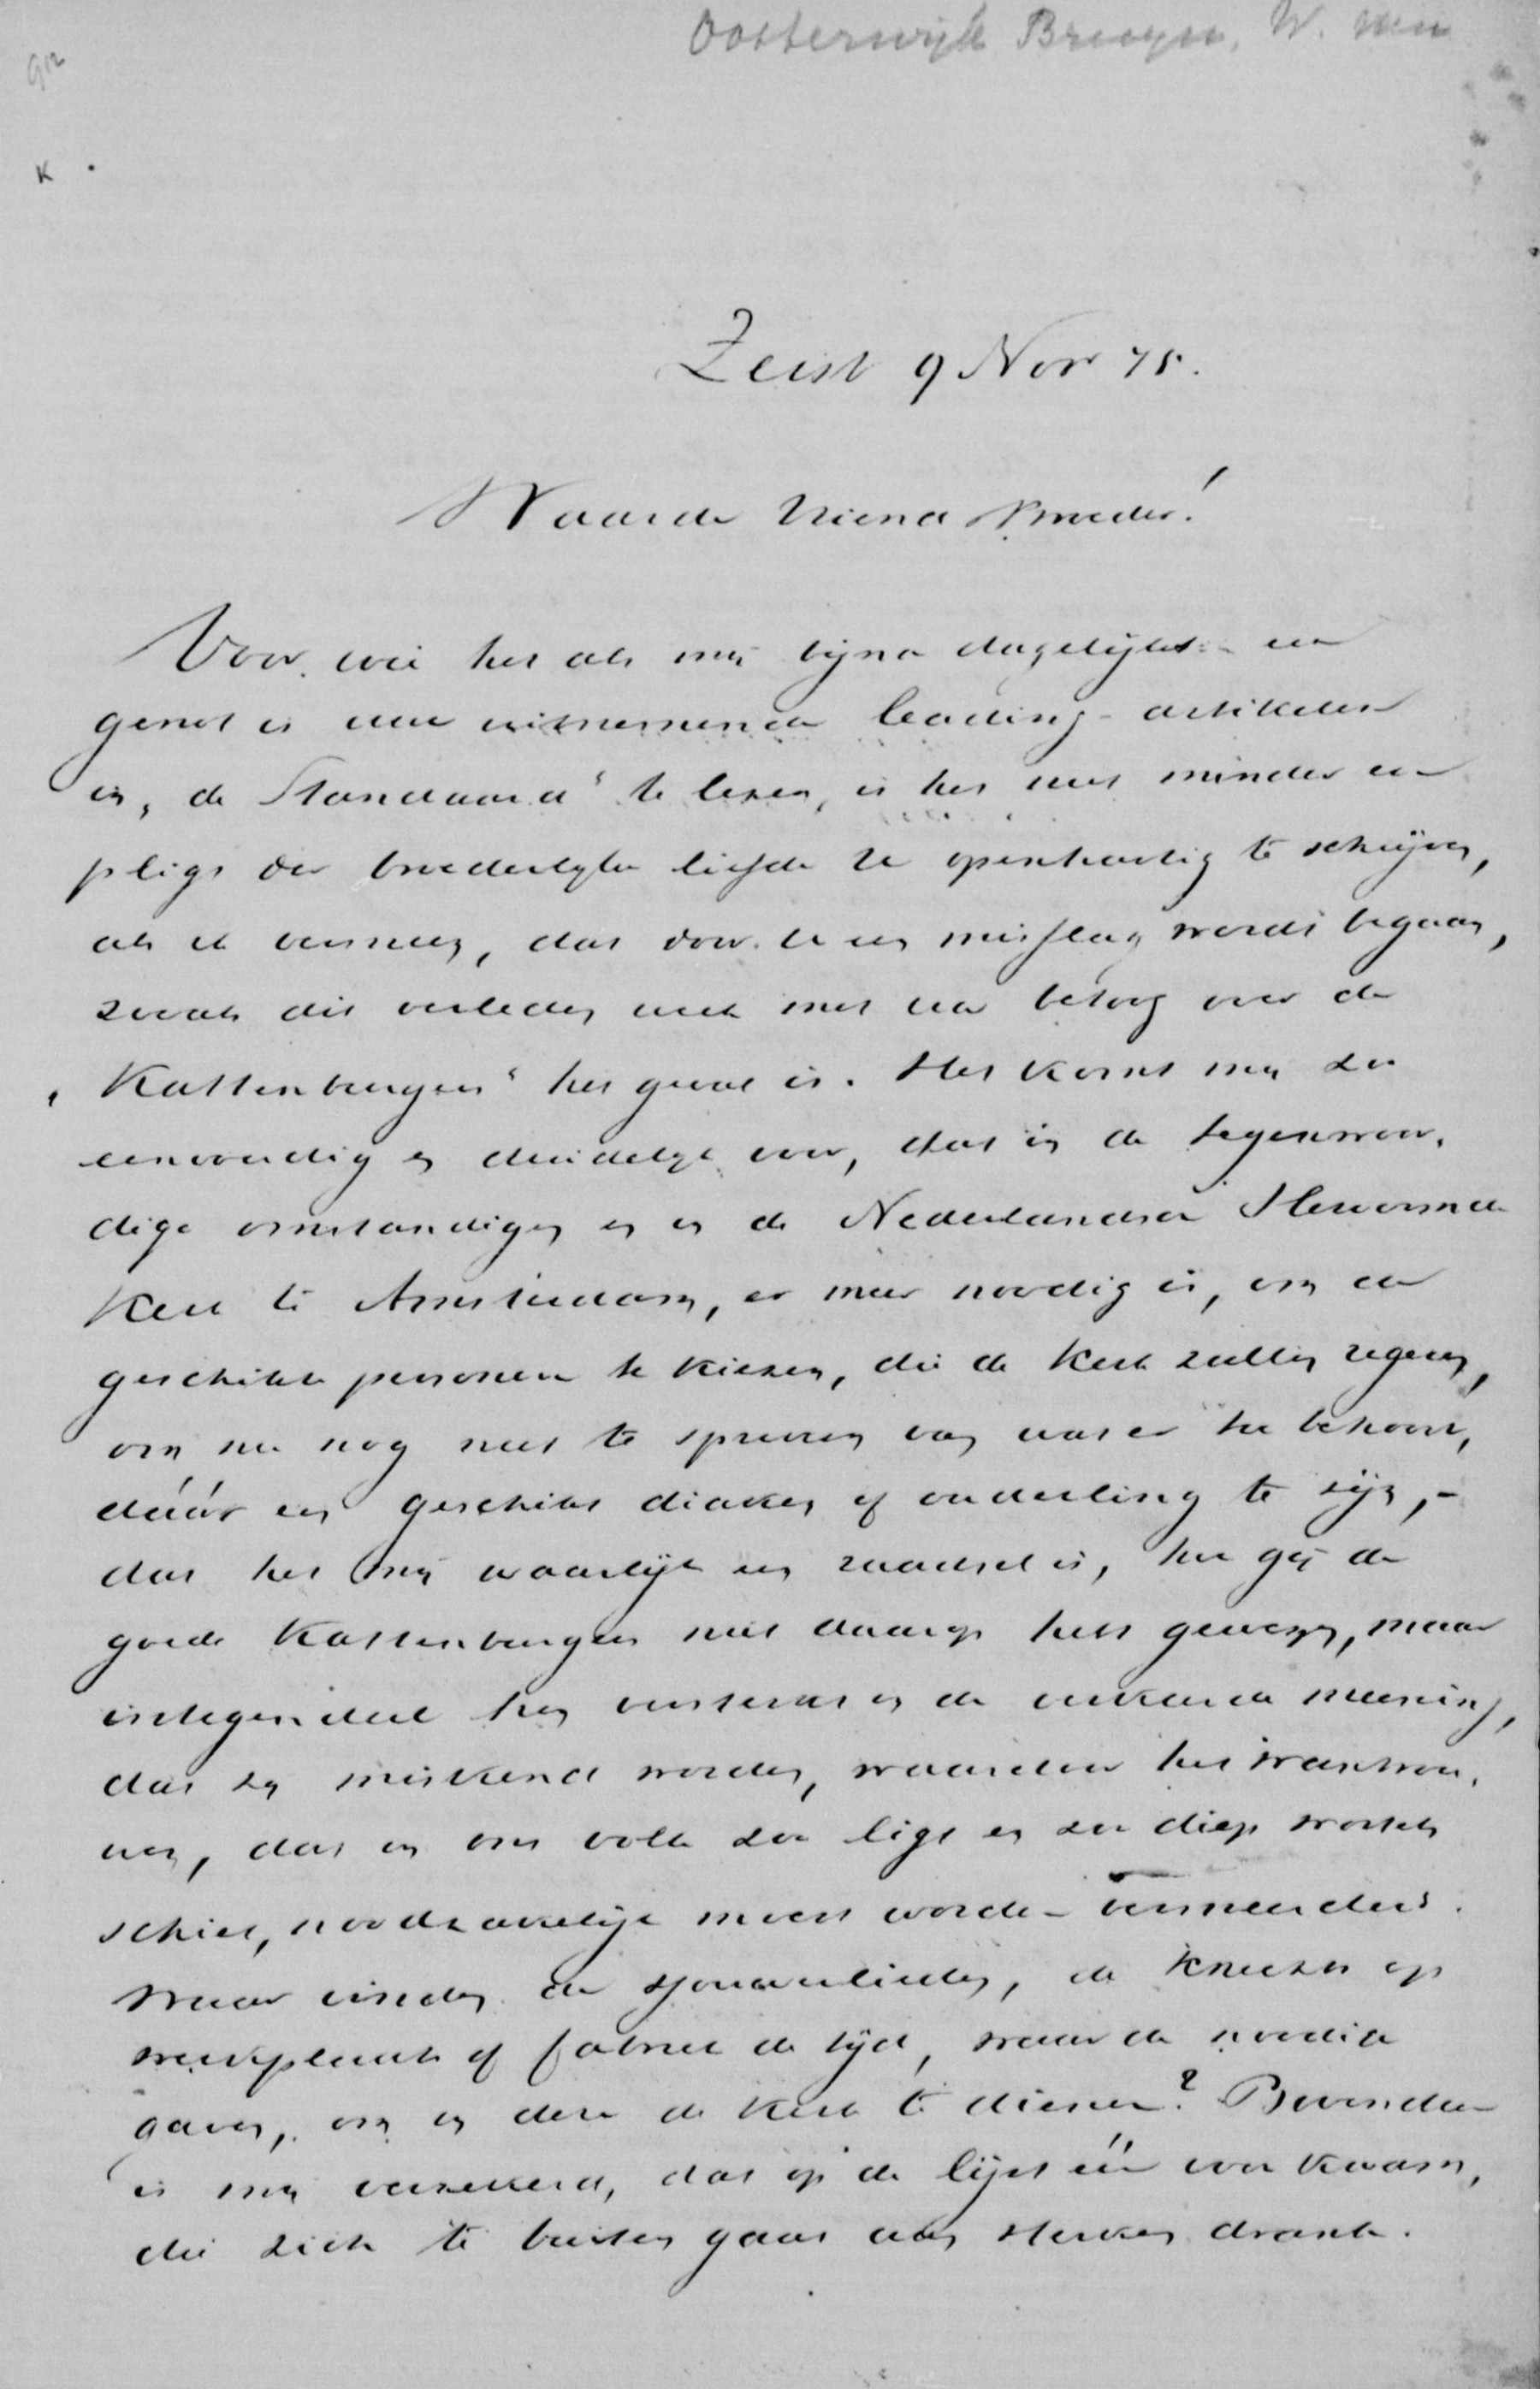 Oosterwijk Bruyn, W. van
912
K.
Zeist 9 Nov 75.
Waarde Vriend & Broeder!
Voor wie het als mij bijna dagelijks een
genot is uwe uitnemende leading-artikelen
in „de Standaard" te lezen, is het niet minder een
pligt der broederlijke liefde U openhartig te schrijven,
als ik vermeen, dat door U een misslag wordt begaan,
zooals dit verleden week met uw betoog over de
„Kattenburgers" het geval is. Het komt mij zoo
eenvoudig en duidelijk voor, dat in de tegenwoor-
dige omstandigheden en in de Nederlandsche Hervormde
Kerk te Amsterdam, er meer noodig is, om de
geschikte personen te kiezen, die de kerk zullen regeren,
om nu nog niet te spreken van wat er toe behoort,
dáár een geschikt diaken of ouderling te zijn, -
dat het mij waarlijk een raadsel is, hoe gij de
goede Kattenburgers niet daarop hebt gewezen, maar
integendeel hen versterkt in de verkeerde meening,
dat zij miskend worden, waardoor het wantrou-
wen, dat in ons volk zoo ligt en zoo diep wortel
schiet, noodzakelijk moest worden vermeerderd.
Waar vinden de sjouwerlieden, de knechts op
werkplaats of fabriek de tijd, waar de noodige
gaven, om in deze de kerk te dienen? Bovendien
is mij verzekerd, dat op de lijst één voorkwam,
die zich te buiten gaat aan sterken drank.